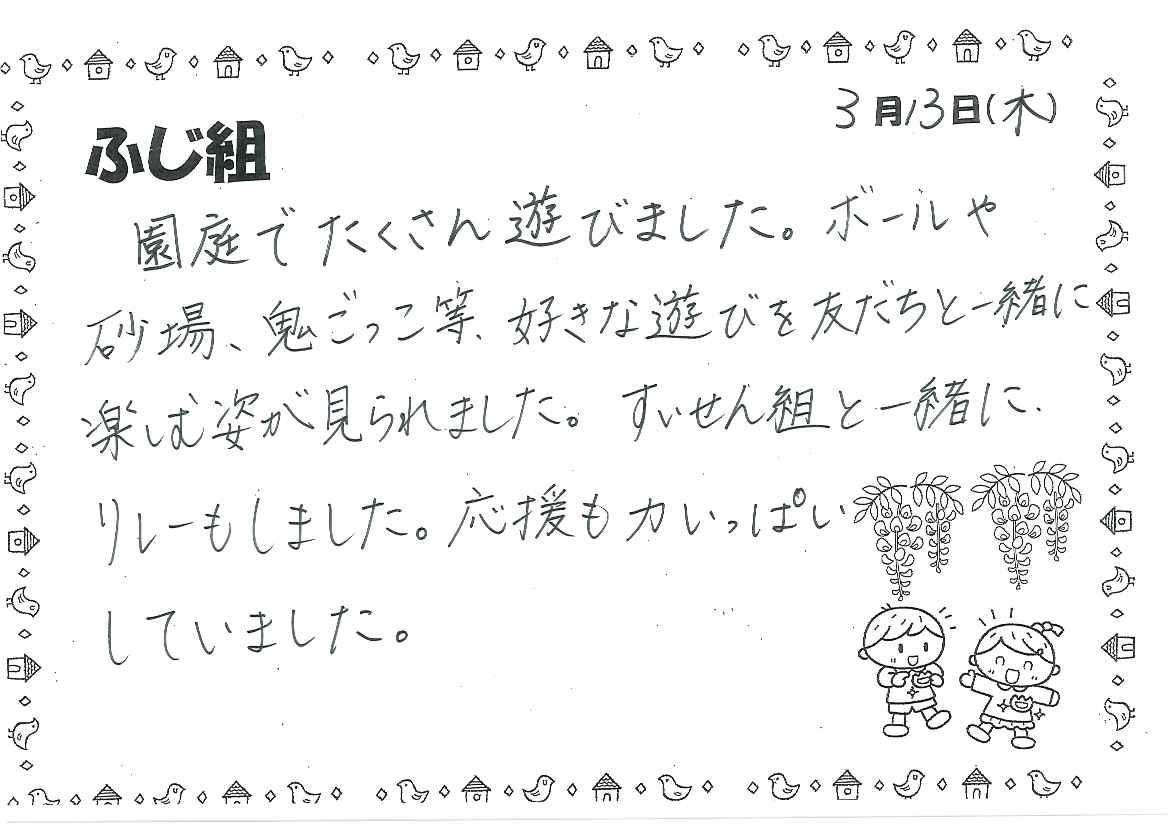 3月13日(木)
ふじ組
園庭でたくさん遊びました。ボールや
砂場、鬼ごっこ等、好きな遊びを友だちと一緒に
楽しむ姿が見られました。すいせん組と一緒に、
リレーもしました。応援も力いっぱい
していました。